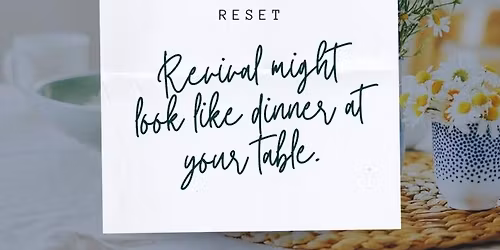 RESET
Revival might
look like dinner at
your table.